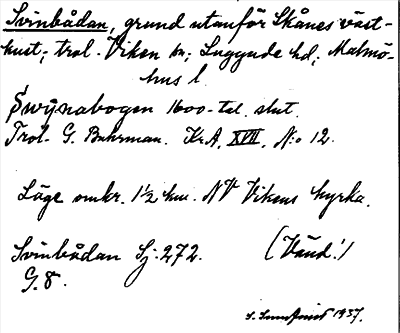 Svinbådan, grund utanför Skånes väst-
kust; trol. Viken sn; Luggude hd; Malmö-
hus l.
Swÿnabogen 1600-tal. slut.
Trol. G. Buhrman. Kr.A. XVII. N:o 12.
Läge omkr. 1½ km. NV Vikens kyrka.
Svinbådan Sj. 272. (Vänd!)
G. 8.
1937.